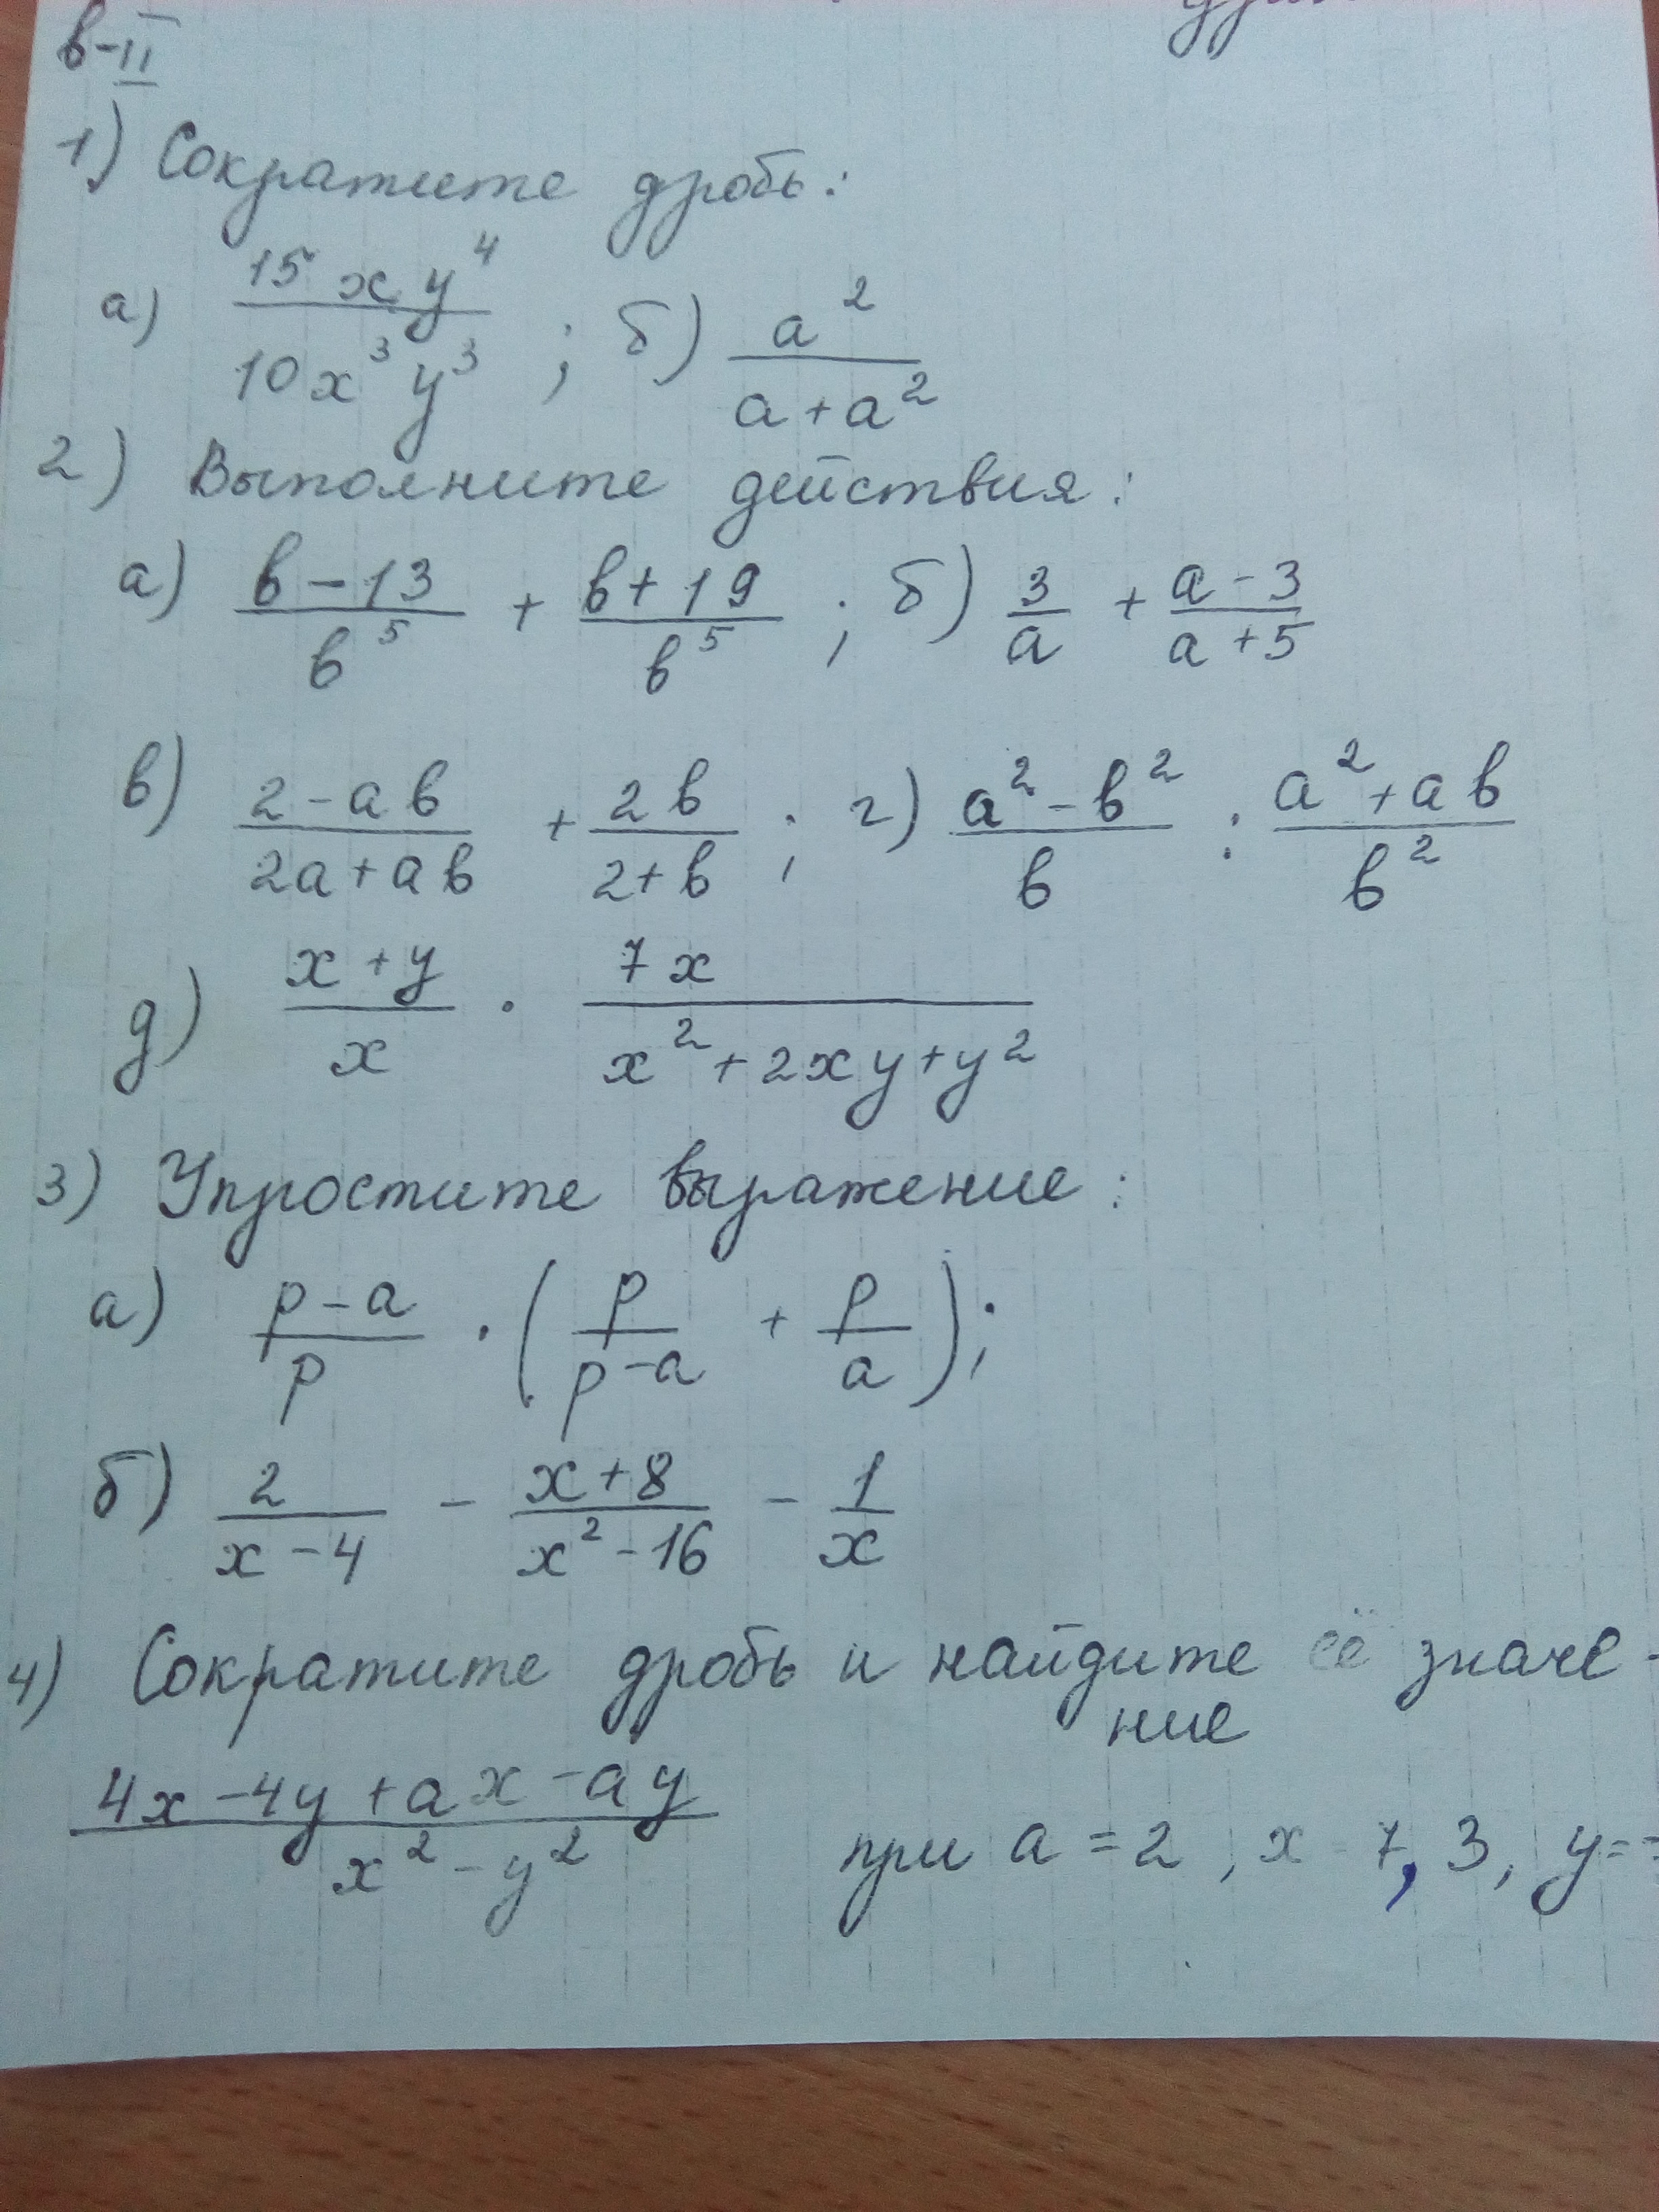 в-II
1) Сократите дробь:
а) \frac{15xy^4}{10x^3y^3}; б) \frac{a^2}{a+a^2}
2) Выполните действия:
а) \frac{b-13}{b^5} + \frac{b+19}{b^5}; б) \frac{3}{a} + \frac{a-3}{a+5}
в) \frac{2-ab}{2a+ab} + \frac{2b}{2+b}; г) \frac{a^2-b^2}{b} : \frac{a^2+ab}{b^2}
д) \frac{x+y}{x} · \frac{7x}{x^2+2xy+y^2}
3) Упростите выражение:
а) \frac{p-a}{p} · (\frac{p}{p-a} + \frac{p}{a});
б) \frac{2}{x-4} - \frac{x+8}{x^2-16} - \frac{1}{x}
4) Сократите дробь и найдите её значе-
ние
\frac{4x-4y+ax-ay}{x^2-y^2} при a=2, x 7,3, y=